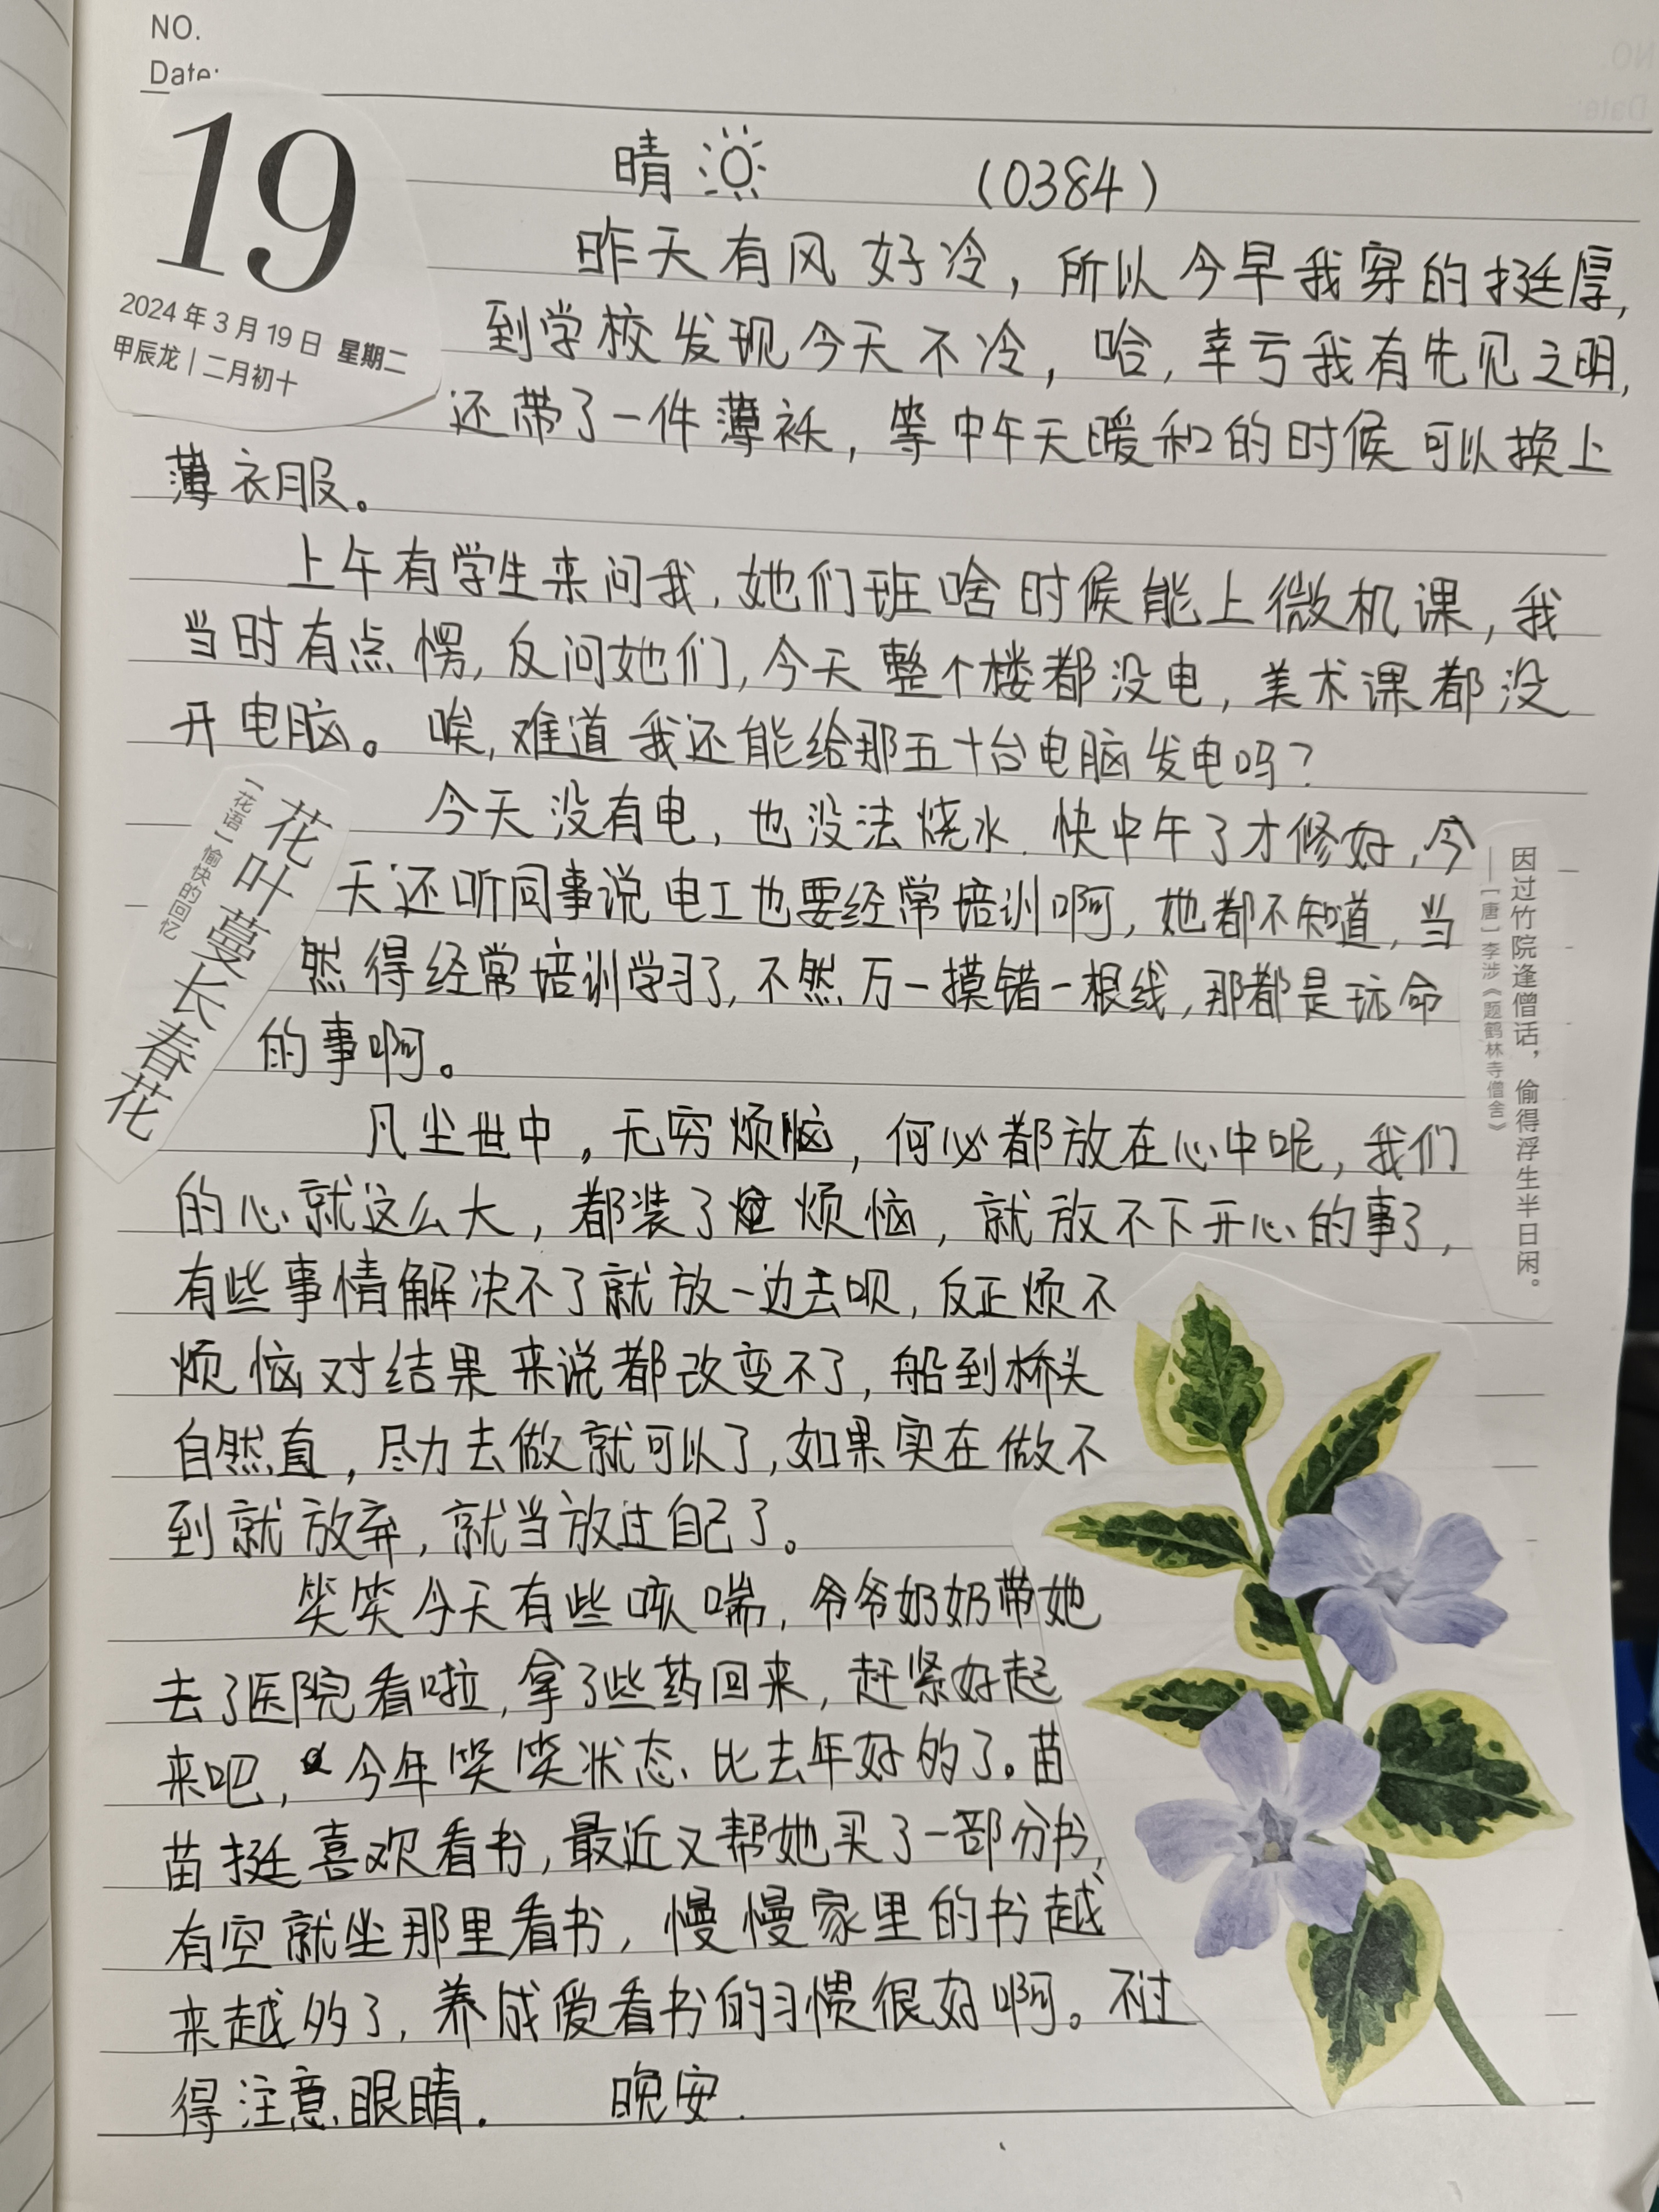 NO.
Date:
19
2024年3月19日 星期二
甲辰龙 | 二月初十
晴 (0384)
昨天有风好冷，所以今早我穿的挺厚，
到学校发现今天不冷，哈，幸亏我有先见之明，
还带了一件薄袄，等中午天暖和的时候可以换上
薄衣服。
上午有学生来问我，她们班啥时候能上微机课，我
当时有点愣，反问她们，今天整个楼都没电，美术课都没
开电脑。唉，难道我还能给那五十台电脑发电吗？
今天没有电，也没法烧水．快中午了才修好，今
天还听同事说电工也要经常培训啊，她都不知道，当
然得经常培训学习了，不然万一摸错一根线，那都是玩命
的事啊。
花叶蔓长春花
[花语] 愉快的回忆
因过竹院逢僧话，偷得浮生半日闲。
——[唐] 李涉《题鹤林寺僧舍》
凡尘世中，无穷烦恼，何必都放在心中呢，我们
的心就这么大，都装了烦恼，就放不下开心的事了，
有些事情解决不了就放一边去呗，反正烦不
烦恼对结果来说都改变不了，船到桥头
自然直，尽力去做就可以了，如果实在做不
到就放弃，就当放过自己了。
笑笑今天有些咳喘，爷爷奶奶带她
去了医院看啦，拿了些药回来，赶紧好起
来吧，今年笑笑状态比去年好的了。苗
苗挺喜欢看书，最近又帮她买了一部分书，
有空就坐那里看书，慢慢家里的书越
来越多了，养成爱看书的习惯很好啊。不过
得注意眼睛． 晚安．